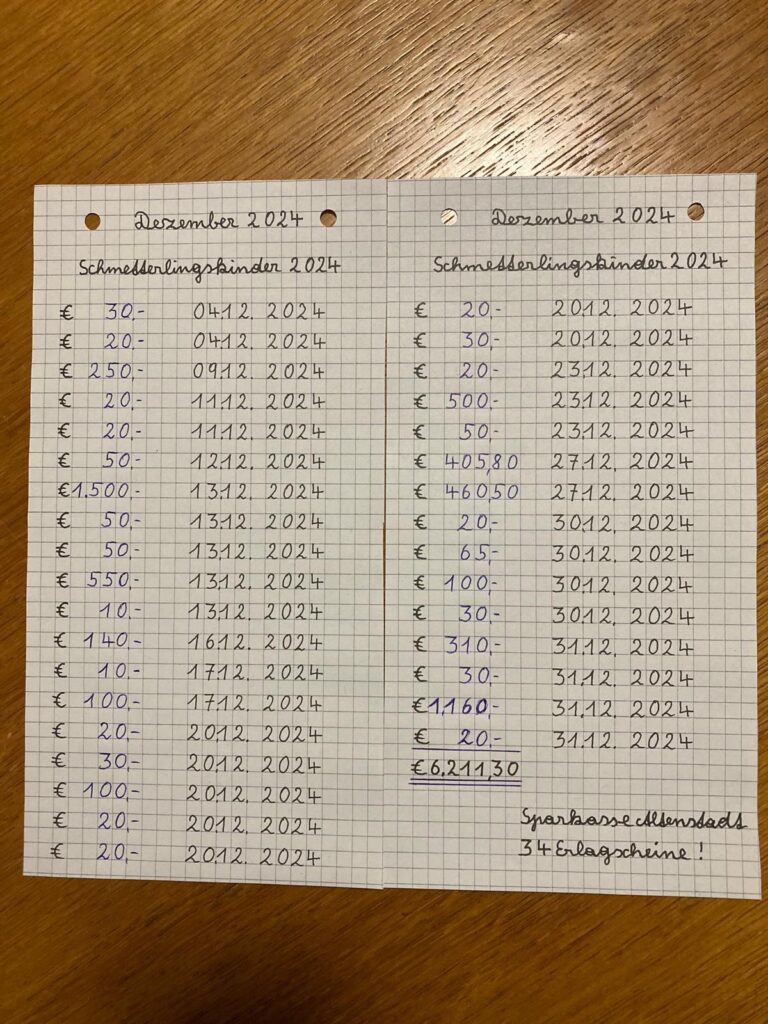 Dezember 2024
Schmetterlingskinder 2024
€ 30,- 04.12. 2024
€ 20,- 04.12. 2024
€ 250,- 09.12. 2024
€ 20,- 11.12. 2024
€ 20,- 11.12. 2024
€ 50,- 12.12. 2024
€ 1.500,- 13.12. 2024
€ 50,- 13.12. 2024
€ 50,- 13.12. 2024
€ 550,- 13.12. 2024
€ 10,- 13.12. 2024
€ 140,- 16.12. 2024
€ 10,- 17.12. 2024
€ 100,- 17.12. 2024
€ 20,- 20.12. 2024
€ 30,- 20.12. 2024
€ 100,- 20.12. 2024
€ 20,- 20.12. 2024
€ 20,- 20.12. 2024
Dezember 2024
Schmetterlingskinder 2024
€ 20,- 20.12. 2024
€ 30,- 20.12. 2024
€ 20,- 23.12. 2024
€ 500,- 23.12. 2024
€ 50,- 23.12. 2024
€ 405,80 27.12. 2024
€ 460,50 27.12. 2024
€ 20,- 30.12. 2024
€ 65,- 30.12. 2024
€ 100,- 30.12. 2024
€ 30,- 30.12. 2024
€ 310,- 31.12. 2024
€ 30,- 31.12. 2024
€ 1.160,- 31.12. 2024
€ 20,- 31.12. 2024
€ 6.211,30
Sparkasse Altenstadt
34 Erlagscheine!